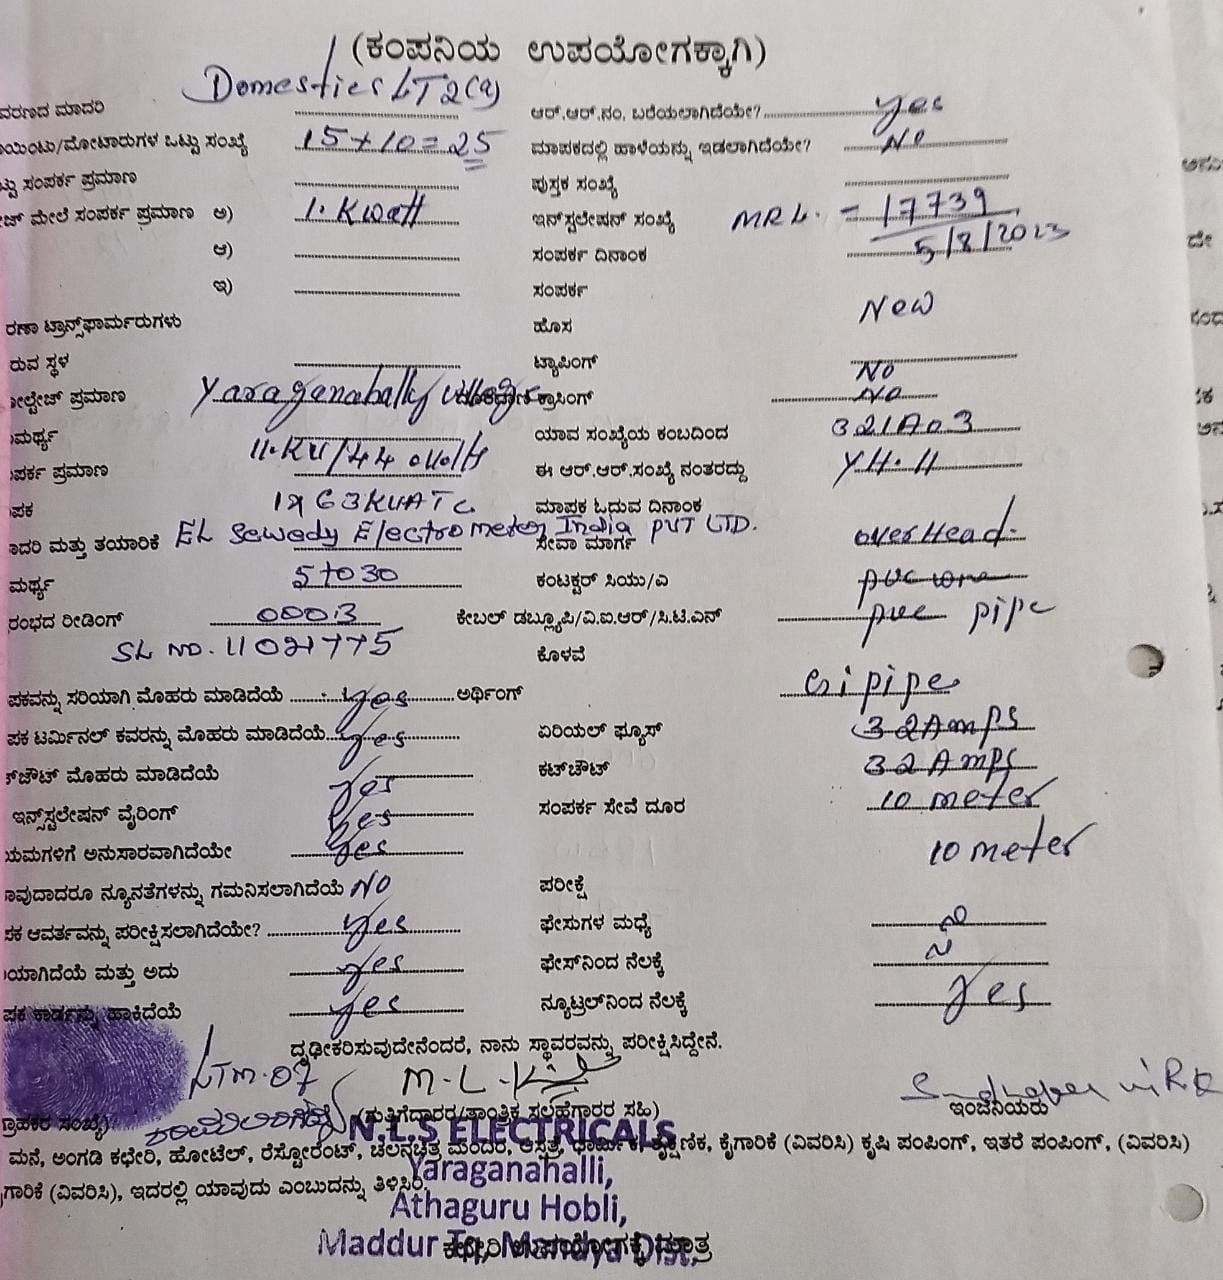 (ಕಂಪನಿಯ ಉಪಯೋಗಕ್ಕಾಗಿ)
Domestics LT2(a)
ವರಣದ ಮಾದರಿ ಆರ್.ಆರ್.ನಂ. ಬರೆಯಲಾಗಿದೆಯೇ? yes
ಯಿಂಟು/ಮೋಟಾರುಗಳ ಒಟ್ಟು ಸಂಖ್ಯೆ 15+10=25 ಮಾಪಕದಲ್ಲಿ ಹಾಳೆಯನ್ನು ಇಡಲಾಗಿದೆಯೇ? No
ಟ್ಟು ಸಂಪರ್ಕ ಪ್ರಮಾಣ ಪುಸ್ತಕ ಸಂಖ್ಯೆ
ೇಜ್ ಮೇಲೆ ಸಂಪರ್ಕ ಪ್ರಮಾಣ ಅ) 1. Kwatt ಇನ್‌ಸ್ಟಲೇಷನ್ ಸಂಖ್ಯೆ MRL. = 17739
ಆ) ಸಂಪರ್ಕ ದಿನಾಂಕ 5/8/2023
ಇ) ಸಂಪರ್ಕ
ರಣಾ ಟ್ರಾನ್ಸ್‌ಫಾರ್ಮರುಗಳು ಹೊಸ New
ರುವ ಸ್ಥಳ ಟ್ಯಾಪಿಂಗ್ No
ೋಲ್ಟೇಜ್ ಪ್ರಮಾಣ Yaraganahally village ಕ್ರಾಸಿಂಗ್ No
ಮರ್ಥ್ಯ ಯಾವ ಸಂಖ್ಯೆಯ ಕಂಬದಿಂದ 321A03
ಪರ್ಕ ಪ್ರಮಾಣ 11.KV/440volts ಈ ಆರ್.ಆರ್.ಸಂಖ್ಯೆ ನಂತರದ್ದು YH.H
ಪಕ 1X63KVATC ಮಾಪಕ ಓದುವ ದಿನಾಂಕ
ಾದರಿ ಮತ್ತು ತಯಾರಿಕೆ EL Sewedy Electrometer India PVT LTD. ಸೇವಾ ಮಾರ್ಗ overHead
ಮರ್ಥ್ಯ 5to30 ಕಂಟಕ್ಟರ್ ಸಿಯು/ಎ pvc wre
ರಂಭದ ರೀಡಿಂಗ್ 00013 ಕೇಬಲ್ ಡಬ್ಲ್ಯೂಪಿ/ವಿ.ಐ.ಆರ್/ಸಿ.ಟಿ.ಎನ್ pvc pipe
SL NO. 11021775 ಕೊಳವೆ
ಪಕವನ್ನು ಸರಿಯಾಗಿ ಮೊಹರು ಮಾಡಿದೆಯೆ yes ಅರ್ಥಿಂಗ್ Gi pipe
ಪಕ ಟರ್ಮಿನಲ್ ಕವರನ್ನು ಮೊಹರು ಮಾಡಿದೆಯೆ yes ಏರಿಯಲ್ ಫ್ಯೂಸ್ 32Amps
ಟ್‌ಔಟ್ ಮೊಹರು ಮಾಡಿದೆಯೆ yes ಕಟ್‌ಔಟ್ 32Amps
ಇನ್ಸ್‌ಸ್ಟಲೇಷನ್ ವೈರಿಂಗ್ yes ಸಂಪರ್ಕ ಸೇವೆ ದೂರ 10 meter
ಯಮಗಳಿಗೆ ಅನುಸಾರವಾಗಿದೆಯೇ yes 10 meter
ಾವುದಾದರೂ ನ್ಯೂನತೆಗಳನ್ನು ಗಮನಿಸಲಾಗಿದೆಯೆ NO ಪರೀಕ್ಷೆ
ಪಕ ಆವರ್ತವನ್ನು ಪರೀಕ್ಷಿಸಲಾಗಿದೆಯೇ? yes ಫೇಸುಗಳ ಮಧ್ಯೆ
ಯಾಗಿದೆಯೆ ಮತ್ತು ಅದು yes ಫೇಸ್‌ನಿಂದ ನೆಲಕ್ಕೆ
ಪಕ ಕಾರ್ಡನ್ನು ಹಾಕಿದೆಯೆ yes ನ್ಯೂಟ್ರಲ್‌ನಿಂದ ನೆಲಕ್ಕೆ yes
ದೃಢೀಕರಿಸುವುದೇನೆಂದರೆ, ನಾನು ಸ್ಥಾವರವನ್ನು ಪರೀಕ್ಷಿಸಿದ್ದೇನೆ.
LTM.07 M.L.
ಗ್ರಾಹಕರ ಸಂಖ್ಯೆ) (ಗುತ್ತಿಗೆದಾರರ/ತಾಂತ್ರಿಕ ಸಲಹೆಗಾರರ ಸಹಿ) ಇಂಜಿನಿಯರು
N.L.S ELECTRICALS
ಮನೆ, ಅಂಗಡಿ ಕಛೇರಿ, ಹೋಟೆಲ್, ರೆಸ್ಟೋರೆಂಟ್, ಚಲನಚಿತ್ರ ಮಂದಿರ, ಆಸ್ಪತ್ರೆ, ಧಾರ್ಮಿಕ, ಶೈಕ್ಷಣಿಕ, ಕೈಗಾರಿಕೆ (ವಿವರಿಸಿ) ಕೃಷಿ ಪಂಪಿಂಗ್, ಇತರೆ ಪಂಪಿಂಗ್, (ವಿವರಿಸಿ)
Yaraganahalli,
ಗಾರಿಕೆ (ವಿವರಿಸಿ), ಇದರಲ್ಲಿ ಯಾವುದು ಎಂಬುದನ್ನು ತಿಳಿಸಿರಿ.
Athaguru Hobli,
Maddur Tq, Mandya Dist.
ಕಛೇರಿ ಉಪಯೋಗಕ್ಕೆ ಮಾತ್ರ